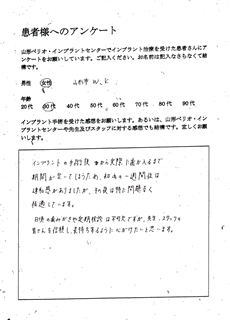 患者様へのアンケート
山形ペリオ・インプラントセンターでインプラント治療を受けた患者さんにア
ンケートをお願いしています。ご記入ください。お名前は記入なさらなくて結
構です。
男性 女性 山形市 W.K
年齢
20代 30代 40代 50代 60代 70代 80代 90代
インプラント手術を受けた感想をお願いします。あるいは、山形ペリオ・イン
プラントセンターや先生及びスタッフに対する感想でも結構です。宜しくお願
いします。
インプラントの手術後 から実際に歯が入るまで
期間が空いてしまうため、初めの一週間位は
違和感がありましたが、その後は特に問題なく
経過しています。
日頃の歯みがきや定期検診は不可欠ですが、先生、スタッフの
皆さんを信頼し、長持ちするように心がけたいと思います。